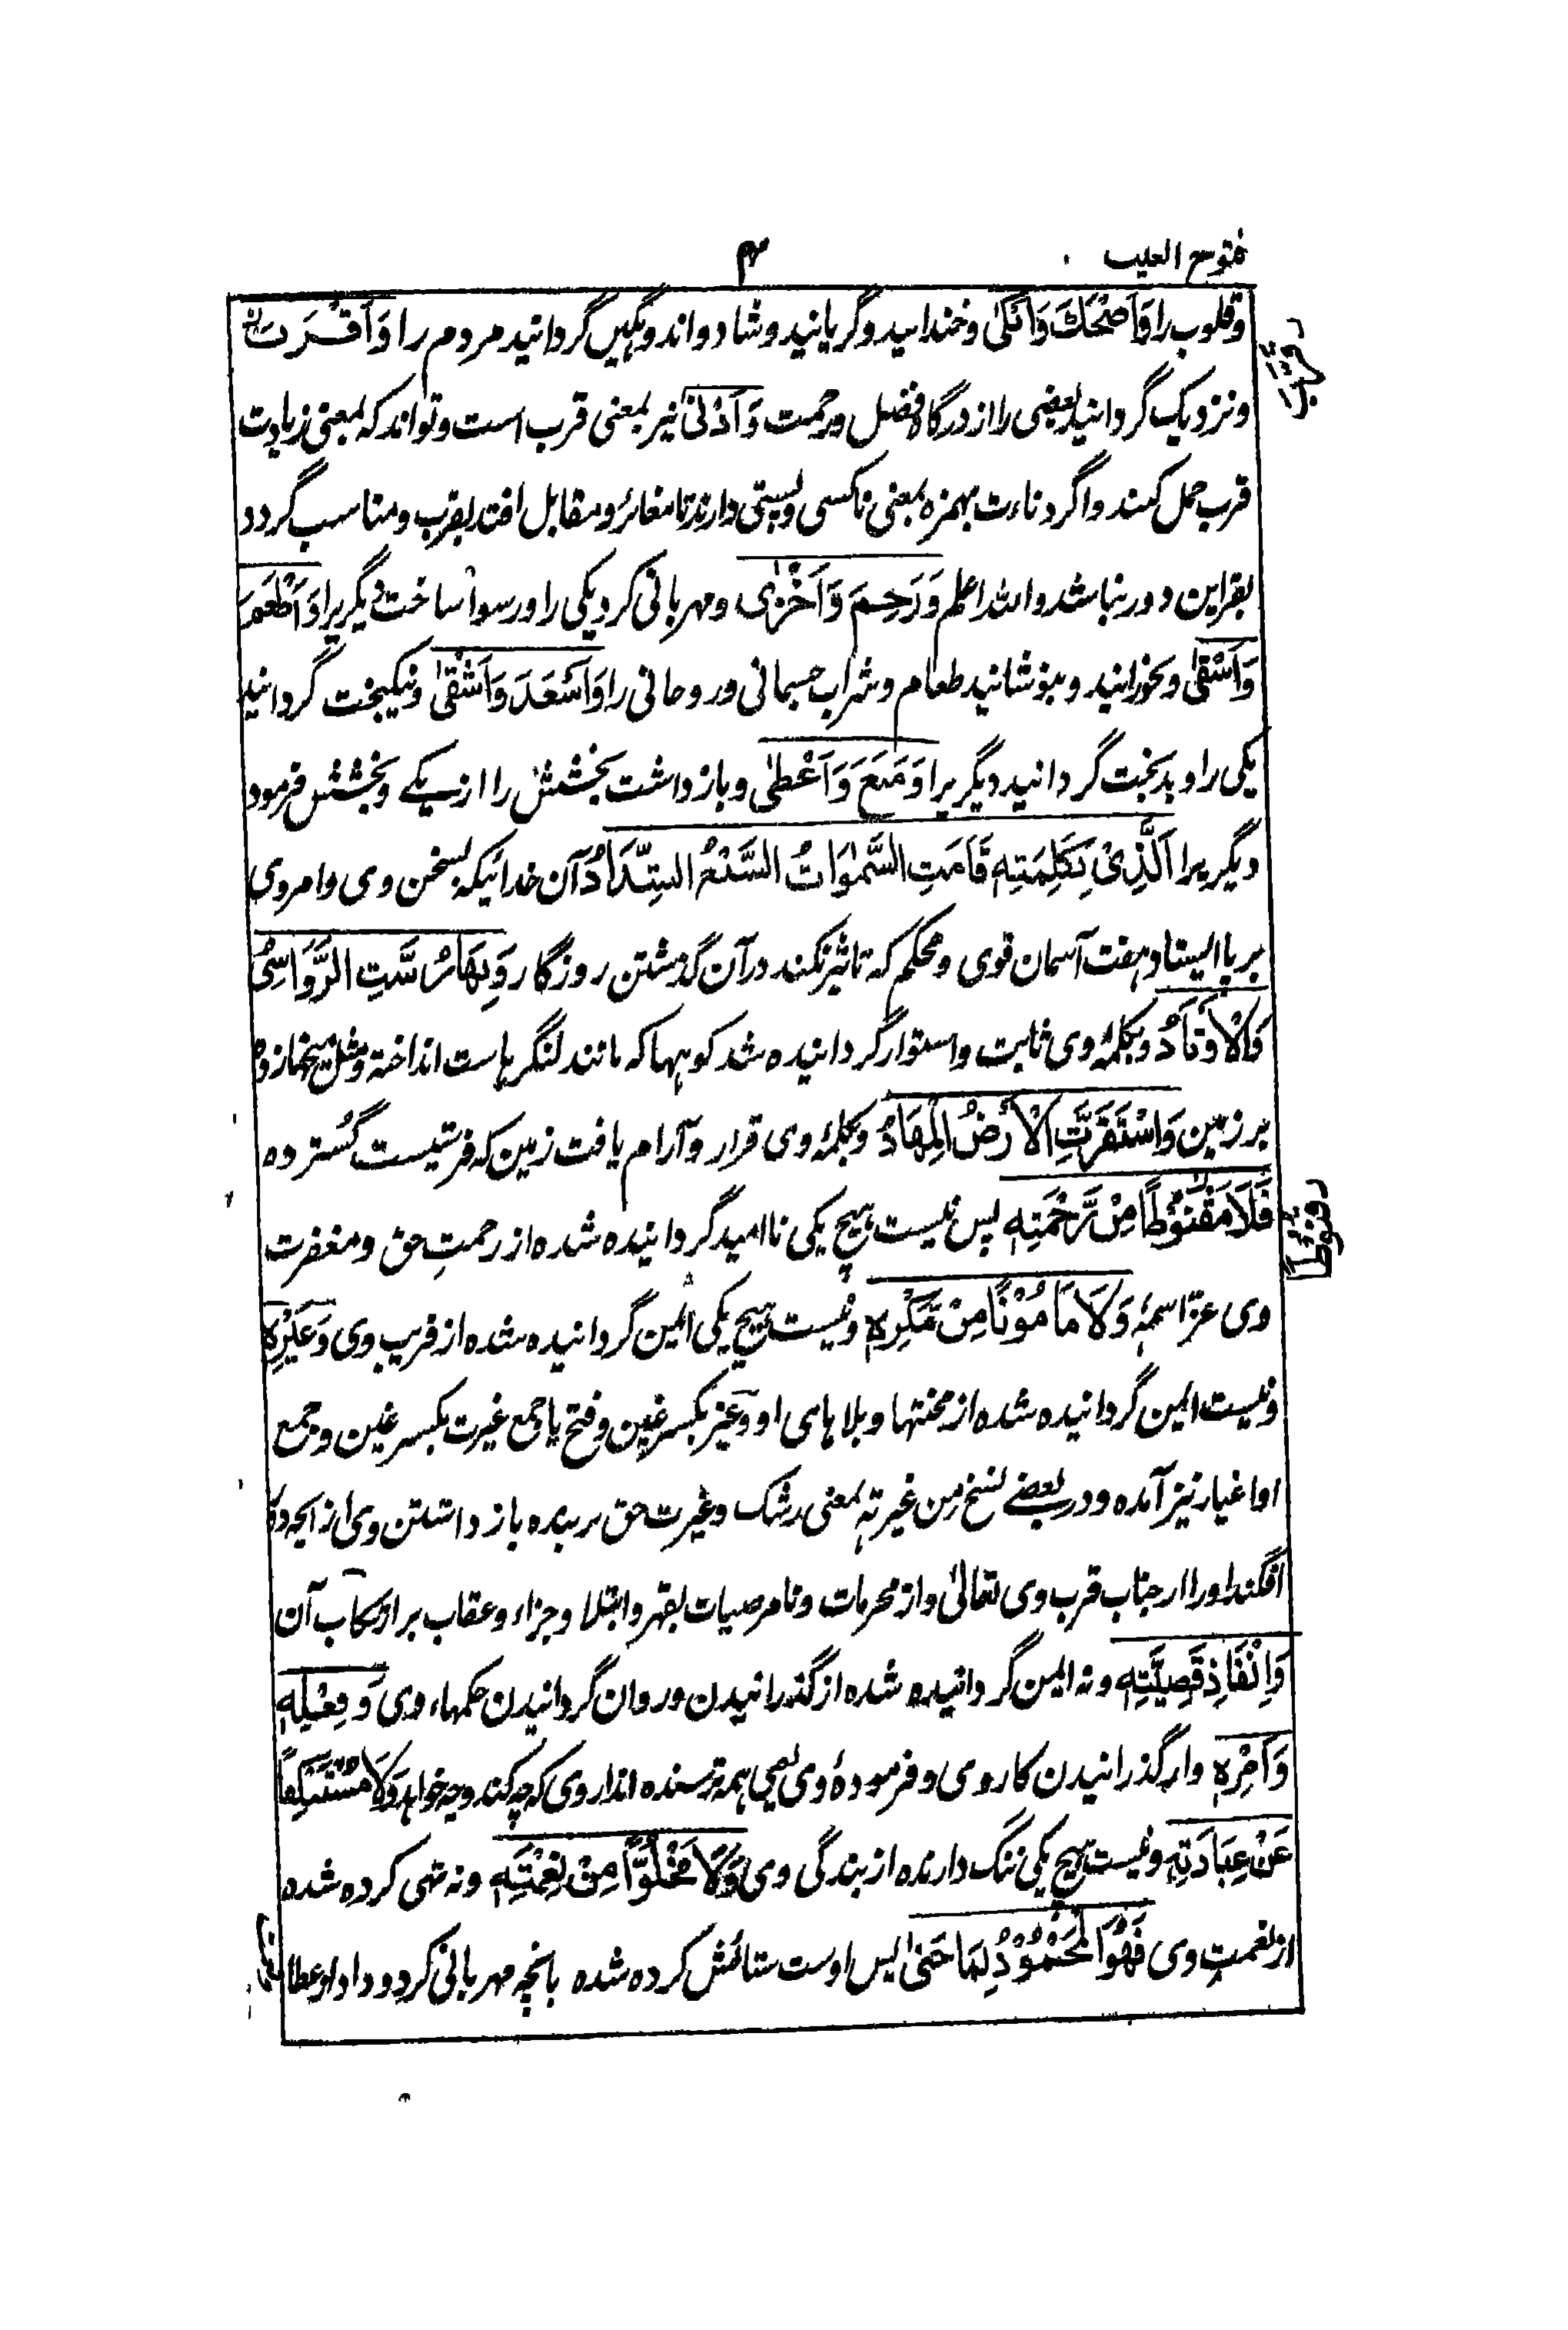 فتوح الغیب
۴
وقلوب را وَاَضْحَكَ وَاَبْكٰى وخندانید وگریانید وشاد واندوہگیں گردانید مردم را وَاَقْرَبَ
ونزدیک گردانید بعضی را از درگاہ فضل ورحمت وَاَدْنٰى نیز بمعنی قرب است وتواند کہ بمعنی زیادت
قرب حمل کنند واگر دناءت بہمزہ بمعنی ناکسی وپستی دارند تا مغائر ومقابل افتد بقرب ومناسب گردد
بقراین دور نباشد واللہ اعلم وَرَحِمَ وَاَخْزٰى ومہربانی کرد یکی را ورسوا ساخت دیگریرا وَاَطْعَمَ
وَاَسْقٰى وبخورانید وبنوشانید طعام وشراب جسمانی وروحانی را وَاَسْعَدَ وَاَشْقٰى ونیکبخت گردانید
یکی را وبدبخت گردانید دیگریرا وَمَنَعَ وَاَعْطٰى وبازداشت بخشش را از یکے وبخشش فرمود
دیگریرا اَلَّذِىْ بِكَلِمَتِهٖ قَامَتِ السَّمٰوَاتُ السَّبْعُ السِّدَادُ آن خدائیکہ بسخن وی وامر وی
برپا ایستاد ہفت آسمان قوی ومحکم کہ تاثیر نکند درآن گذشتن روزگار وَبِهَا رُسَّتِ الرَّوَاسِىْ
وَالْاَوْتَادُ وبکلمۂ وی ثابت واستوار گردانیدہ شد کوہہا کہ مانند لنگرہاست انداختہ ومثل میخہا زدہ
بر زمین وَاسْتَقَرَّتِ الْاَرْضُ الْمِهَادُ وبکلمۂ وی قرار وآرام یافت زمین کہ فرشیست گسترده
فَلَا مَقْنُوْطًا مِنْ رَّحْمَتِهٖ پس نیست ہیچ یکی ناامید گردانیدہ شدہ از رحمتِ حق ومغفرت
وی عزّ اسمہٗ وَلَا مَامُوْنًا مِنْ مَّكْرِهٖ ونیست ہیچ یکی ایمن گردانیدہ شدہ از فریب وی وَغِيَرِهٖ
ونیست ایمن گردانیدہ شدہ از محنتہا وبلاہای او وغیر بکسر غین وفتح یا جمع غیرت بکسر غین وجمع
او اغیار نیز آمدہ ودر بعضے نسخ من غیرتہٖ بمعنی رشک وغیرت حق بر بندہ بازداشتن وی از انچہ دور
افگند اورا از جناب قرب وی تعالیٰ واز محرمات ونامرضیات بقہر وابتلا وجزاء وعقاب بر ارتکاب آن
وَاِنْفَاذِ قَضِيَّتِهٖ ونہ ایمن گردانیدہ شدہ از گذرانیدن وروان گردانیدن حکمہاء وی وَفِعْلِهٖ
وَاَمْرِهٖ واز گذرانیدن کار وی وفرمودۂ وی یعنی ہمہ ترسندہ اند از وی کہ چہ کند وچہ خواہد وَلَا مُسْتَنْكِفًا
عَنْ عِبَادَتِهٖ ونیست ہیچ یکی ننگ دارندہ از بندگی وی وَلَا مَخْلُوًّا مِنْ نِعْمَتِهٖ ونہ تہی کردہ شدہ
از نعمتِ وی فَهُوَ الْمَحْمُوْدُ لِمَا حَبٰى پس اوست ستائش کردہ شدہ بانچہ مہربانی کرد وداد از عطا